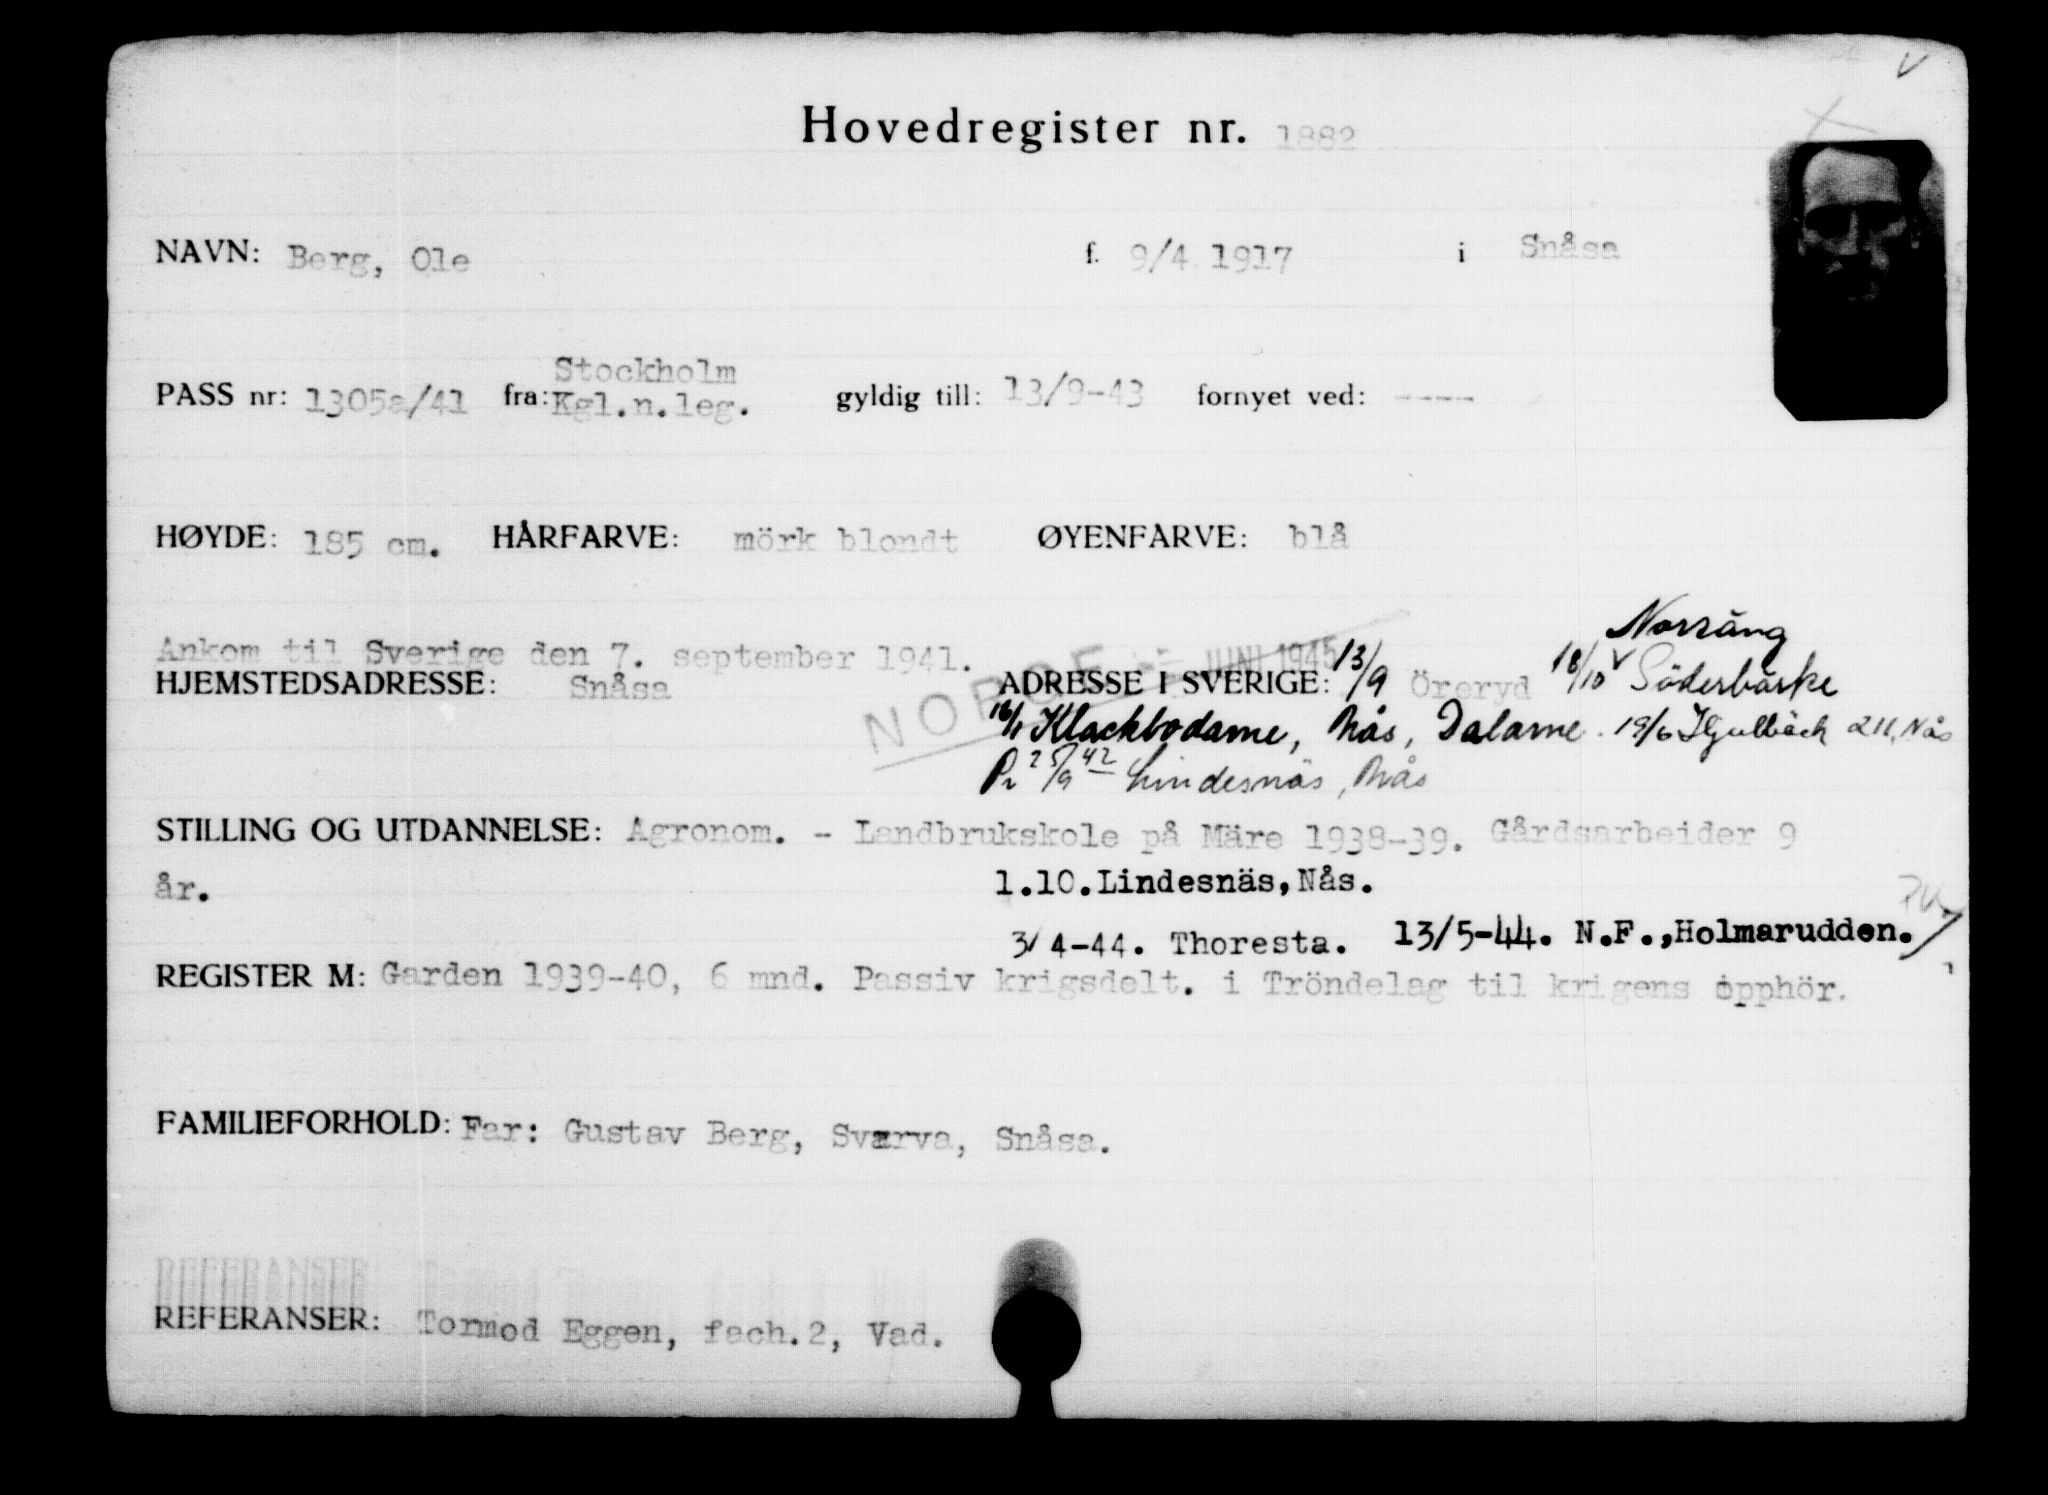 Hovedregister nr. 1882
NAVN: Berg, Ole f. 9/4 1917 i Snåsa
Stockholm
PASS nr: 1305a/41 fra: Kgl.n.leg. gyldig till: 13/9-43 fornyet ved: ----
HØYDE: 185 cm. HÅRFARVE: mörk blondt ØYENFARVE: blå
Ankom til Sverige den 7. september 1941. JUNI 1945 Norräng
HJEMSTEDSADRESSE: Snåsa ADRESSE I SVERIGE: 13/9 Öreryd 18/10 Söderbärke
NORGE
16/1 Klackbodarne, Nås, Dalarne. 19/6 Hjulbäck 211, Nås
25/9 42 Lindesnäs, Nås
STILLING OG UTDANNELSE: Agronom. - Landbrukskole på Märe 1938-39. Gårdsarbeider 9
år. 1.10. Lindesnäs, Nås.
3/4-44. Thoresta. 13/5-44. N.F., Holmarudden.
REGISTER M: Garden 1939-40, 6 mnd. Passiv krigsdelt. i Tröndelag til krigens opphör.
FAMILIEFORHOLD: Far: Gustav Berg, Sværva, Snåsa.
REFERANSER
REFERANSER: Tormod Eggen, fach.2, Vad.